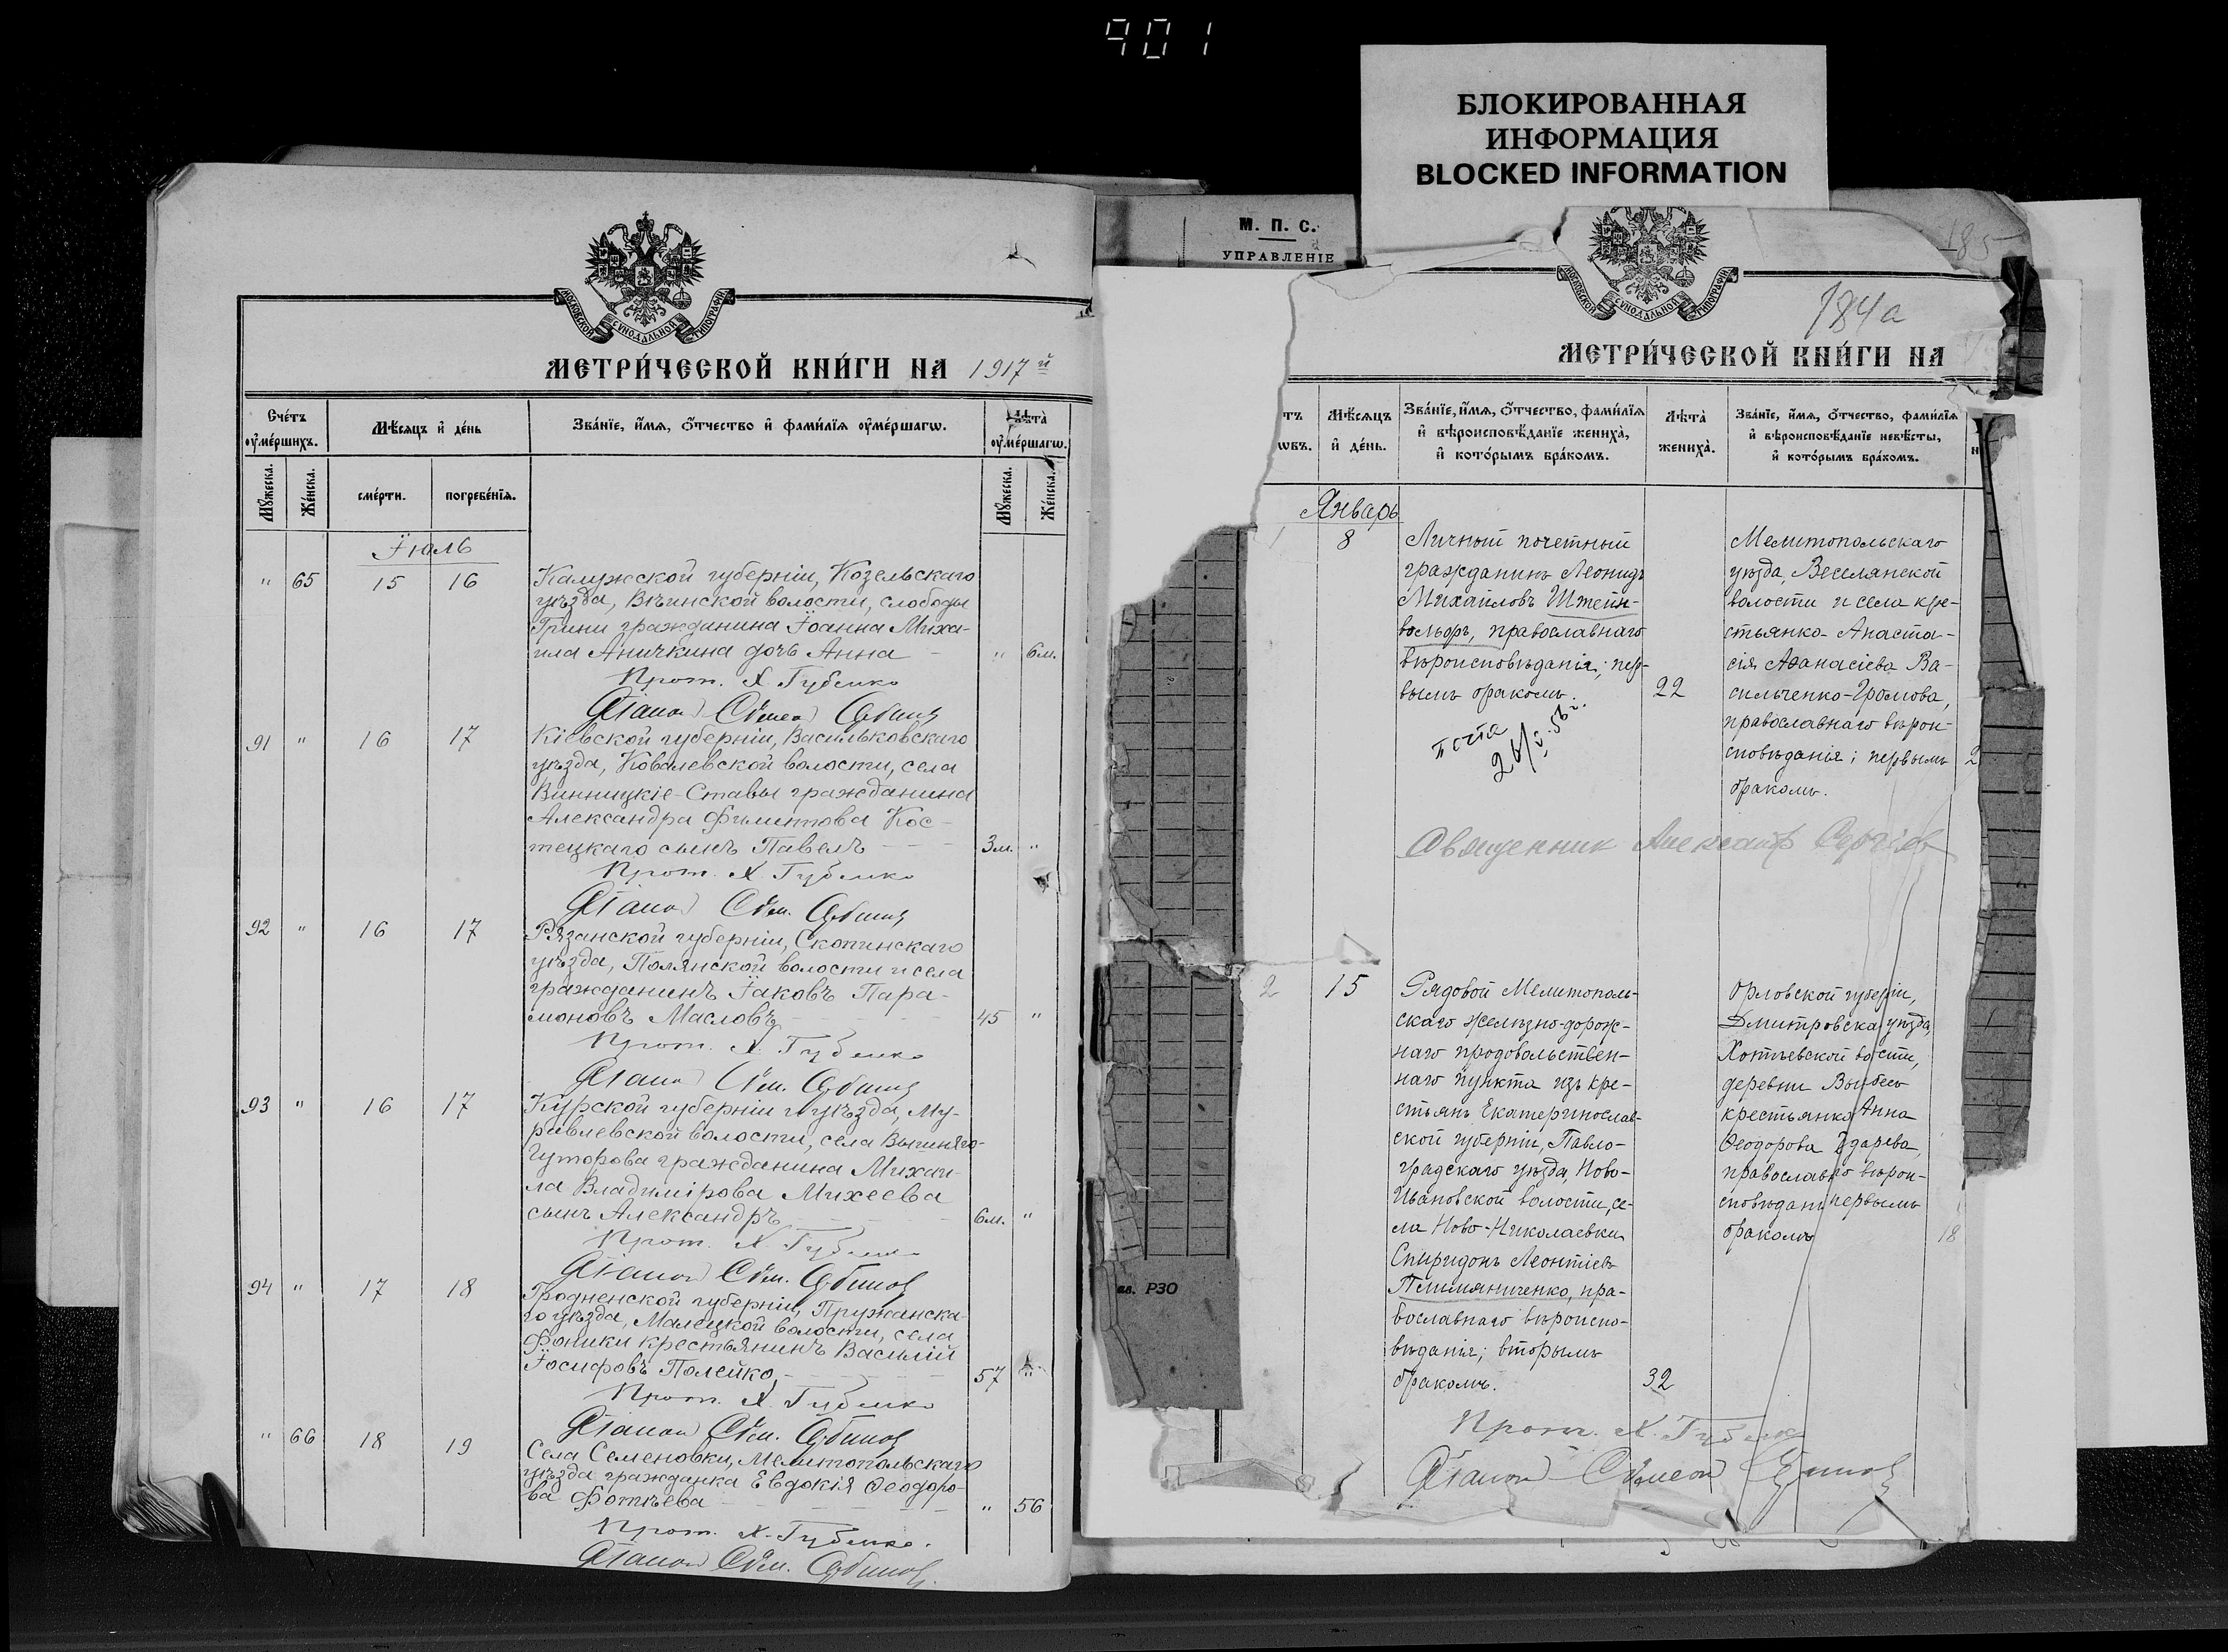 901
БЛОКИРОВАННАЯ
ИНФОРМАЦИЯ
BLOCKED INFORMATION
М. П. С.
УПРАВЛЕНІЕ
МОСКОВСКОЙ СѴНОДАЛЬНОЙ ТИПОГРАФІИ
МЕТРИ́ЧЕСКОЙ КНИ́ГИ НА 1917 й
Сче́тъ ᲂу҆ме́ршихъ.
Мѣ́сяцъ и҆ де́нь
Зва́нїе, и҆́мѧ, ѻ҆́тчество и҆ фами́лїѧ ᲂу҆ме́ршагѡ.
Лѣ́та ᲂу҆ме́ршагѡ.
Мꙋжеска.
Же́нска.
сме́рти.
погребе́нїѧ.
Мꙋжеска.
Же́нска.
Іюль
" 65 15 16 Калужской губерніи, Козельскаго
уѣзда, слободы
гражданина Іоанна Миха-
ила Аничкина дочь Анна " 6м.
Прот. Х. Губенко
Діаконъ Сѵмеон
91 " 16 17 Кіевской губерніи, Васильковскаго
уѣзда, Ковалевской волости, села
Винницкіе-Ставы гражданина
Александра Филиппова Кос-
тецкаго сынъ Павелъ 3м. "
Прот. Х. Губенко
Діаконъ Сѵм.
92 " 16 17 Рязанской губерніи, Скопинскаго
уѣзда, Полянской волости и села
гражданинъ Іаковъ Пара-
моновъ Масловъ 45 "
Прот. Х. Губенко
Діаконъ Сѵм.
93 " 16 17 Курской губерніи и уѣзда, Му-
равлевской волости, села Вышняго-
Гуторова гражданина Михаи-
ла Владимірова Михеева
сынъ Александръ 6м. "
Прот. Х. Губенко
Діаконъ Сѵм.
94 " 17 18 Гродненской губерніи, Пружанска-
го уѣзда, Малецкой волости, села
крестьянинъ Василій
Іосифовъ Полейко 57 "
Прот. Х. Губенко
Діаконъ Сѵм.
" 66 18 19 Села Семеновки, Мелитопольскаго
уѣзда гражданка Евдокія Ѳеодоро-
ва Фотѣева " 56
Прот. Х. Губенко.
Діаконъ Сѵм.
185
МОСКОВСКОЙ СѴНОДАЛЬНОЙ ТИПОГРАФІИ
184а
МЕТРИ́ЧЕСКОЙ КНИ́ГИ НА
тъ
ѡвъ.
Мѣ́сѧцъ
и҆ де́нь.
Зва́нїе, и҆́мѧ, ѻ҆́тчество, фами́лїѧ
и҆ вѣроисповѣ́данїе жениха̀,
и҆ кото́рымъ бра́комъ.
Лѣ́та
жениха̀.
Зва́нїе, и҆́мѧ, ѻ҆́тчество, фами́лїѧ
и҆ вѣроисповѣ́данїе невѣ́сты,
и҆ кото́рымъ бра́комъ.
Январь
1 8
Личный почетный
гражданинъ Леонидъ
Михайловъ Штейн-
вольфъ, православнаго
вѣроисповѣданія; пер-
вымъ бракомъ.
22
Мелитопольскаго
уѣзда, Веселянской
волости и села кре-
стьянка Анаста-
сія Аѳанасіева Ва-
сильченко-Громова,
православнаго вѣрои-
сповѣданія; первымъ
бракомъ.
2
Священник Александр Сергіев
2 15
Рядовой Мелитополь-
скаго желѣзно-дорож-
наго продовольствен-
наго пункта изъ кре-
стьянъ Екатеринослав-
ской губерніи, Павло-
градскаго уѣзда, Ново-
Ивановской волости, се-
ла Ново-Николаевки
Спиридонъ Леонтіевъ
Плимяниченко, пра-
вославнаго вѣроиспо-
вѣданія; вторымъ
бракомъ.
32
Орловской губерніи,
Дмитровска уѣзда,
деревни
крестьянка Анна
Ѳеодорова
вѣрои-
первымъ
бракомъ
18
Прот. Х. Губенко
Діаконъ Сѵмеон
ав. Р30